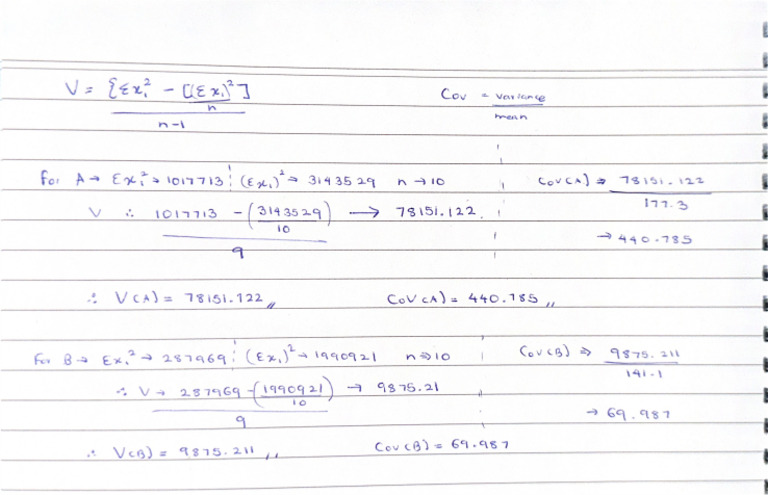 V = {Σxᵢ² - [(Σxᵢ)²]   Cov = variance
n
n-1   mean
For A → Σxᵢ² → 1017713 ; (Σxᵢ)² → 3143529   n → 10   Cov(A) ⇒ 78151.122
177.3
V ∴ 1017713 - (3143529) → 78151.122
10
9   → 440.785
∴ V(A) = 78151.122,,   Cov(A) = 440.785,,
For B → Σxᵢ² → 287969 ; (Σxᵢ)² → 1990921   n ⇒ 10   Cov(B) ⇒ 9875.211
141.1
∴ V → 287969 - (1990921) → 9875.21
10
9   → 69.987
∴ V(B) = 9875.211,,   Cov(B) = 69.987